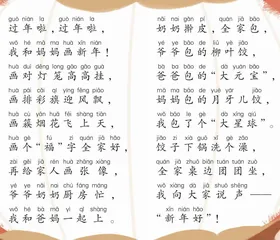 guò nián la guò nián la
过年啦，过年啦，
wǒ hé mā ma huà xīn nián
我和妈妈画新年！
huà duì dēng lóng gāo gāo guà
画对灯笼高高挂，
huà pái cǎi qí yíng fēng piāo
画排彩旗迎风飘，
huà cù yān huā fēi shàng tiān
画簇烟花飞上天，
huà gè fú zì quán jiā hǎo
画个“福”字全家好，
zài gěi jiā rén huà zhāng xiàng
再给家人画张像，
yé ye nǎi nai chú fáng máng
爷爷奶奶厨房忙，
wǒ hé bà mā yì qǐ shàng
我和爸妈一起上。
nǎi nai gǎn pí quán jiā bāo
奶奶擀皮，全家包，
yé ye bāo de liǔ yè jiǎo
爷爷包的柳叶饺，
bà ba bāo de dà yuán bǎo
爸爸包的“大元宝”，
mā ma bāo de yuè yá er jiǎo
妈妈包的月牙儿饺，
wǒ bāo le gè dà xīng qiú
我包了个“大星球”。
jiǎo zi xià guō xǐ gè zǎo
饺子下锅洗个澡，
quán jiā zhuō biān tuán tuán zuò
全家桌边团团坐，
wǒ xiàng dà jiā shuō shēng
我向大家说声——
xīn nián hǎo
“新年好”！